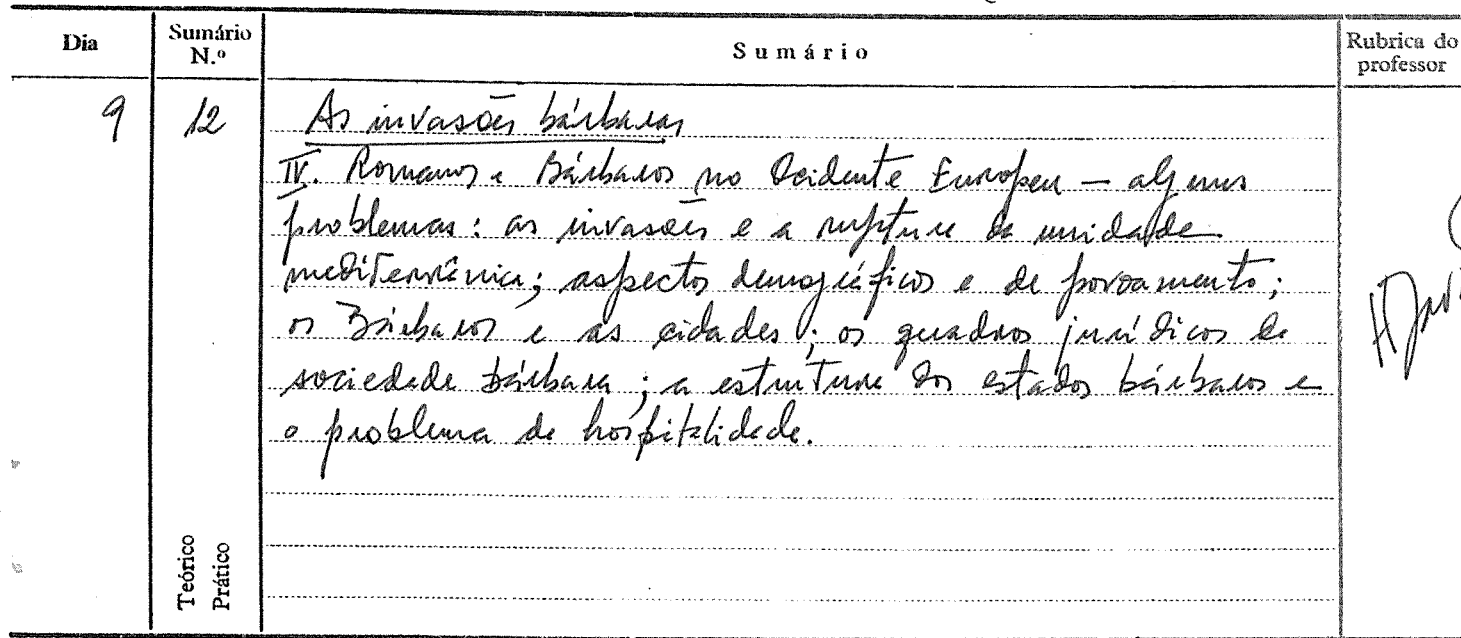 Dia
Sumário N.º
Sumário
Rubrica do professor
9
12
As invasões bárbaras
IV. Romanos e Bárbaros no Ocidente Europeu — alguns
problemas: as invasões e a ruptura da unidade
mediterrânica; aspectos demográficos e de povoamento;
os Bárbaros e as cidades; os quadros jurídicos da
sociedade bárbara; a estrutura dos estados bárbaros e
o problema da hospitalidade.
Teórico
Prático